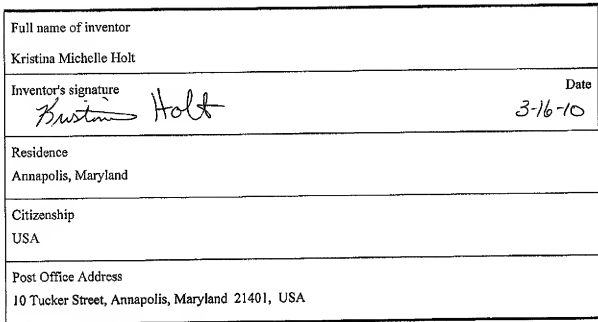 Full name of inventor
Kristina Michelle Holt
Inventor's signature Date
Kristina Holt 3-16-10
Residence
Annapolis, Maryland
Citizenship
USA
Post Office Address
10 Tucker Street, Annapolis, Maryland 21401, USA